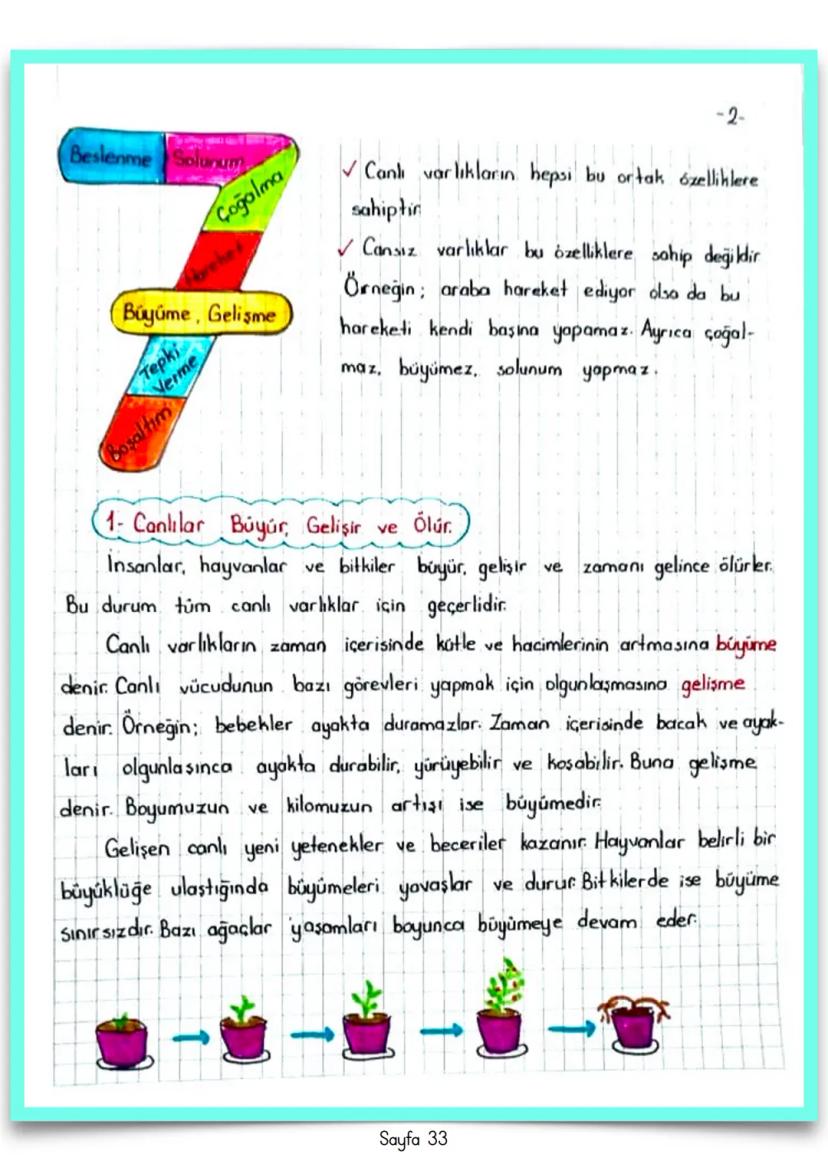 -2-
Beslenme
Solunum
Çoğalma
Hareket
Büyüme, Gelişme
Tepki
Verme
Boşaltım
✓ Canlı varlıkların hepsi bu ortak özelliklere
sahiptir.
✓ Cansız varlıklar bu özelliklere sahip değildir.
Örneğin; araba hareket ediyor olsa da bu
hareketi kendi başına yapamaz. Ayrıca çoğal-
maz, büyümez, solunum yapmaz.
1- Canlılar Büyür, Gelişir ve Ölür.
İnsanlar, hayvanlar ve bitkiler büyür, gelişir ve zamanı gelince ölürler.
Bu durum tüm canlı varlıklar için geçerlidir.
Canlı varlıkların zaman içerisinde kütle ve hacimlerinin artmasına büyüme
denir. Canlı vücudunun bazı görevleri yapmak için olgunlaşmasına gelişme
denir. Örneğin; bebekler ayakta duramazlar. Zaman içerisinde bacak ve ayak-
ları olgunlaşınca ayakta durabilir, yürüyebilir ve koşabilir. Buna gelişme
denir. Boyumuzun ve kilomuzun artışı ise büyümedir.
Gelişen canlı yeni yetenekler ve beceriler kazanır. Hayvanlar belirli bir
büyüklüğe ulaştığında büyümeleri yavaşlar ve durur. Bitkilerde ise büyüme
sınırsızdır. Bazı ağaçlar yaşamları boyunca büyümeye devam eder.
Sayfa 33